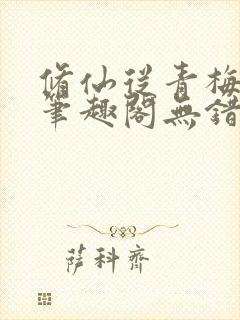 脩仙從青梅
筆趣閣無錯
薩科齊